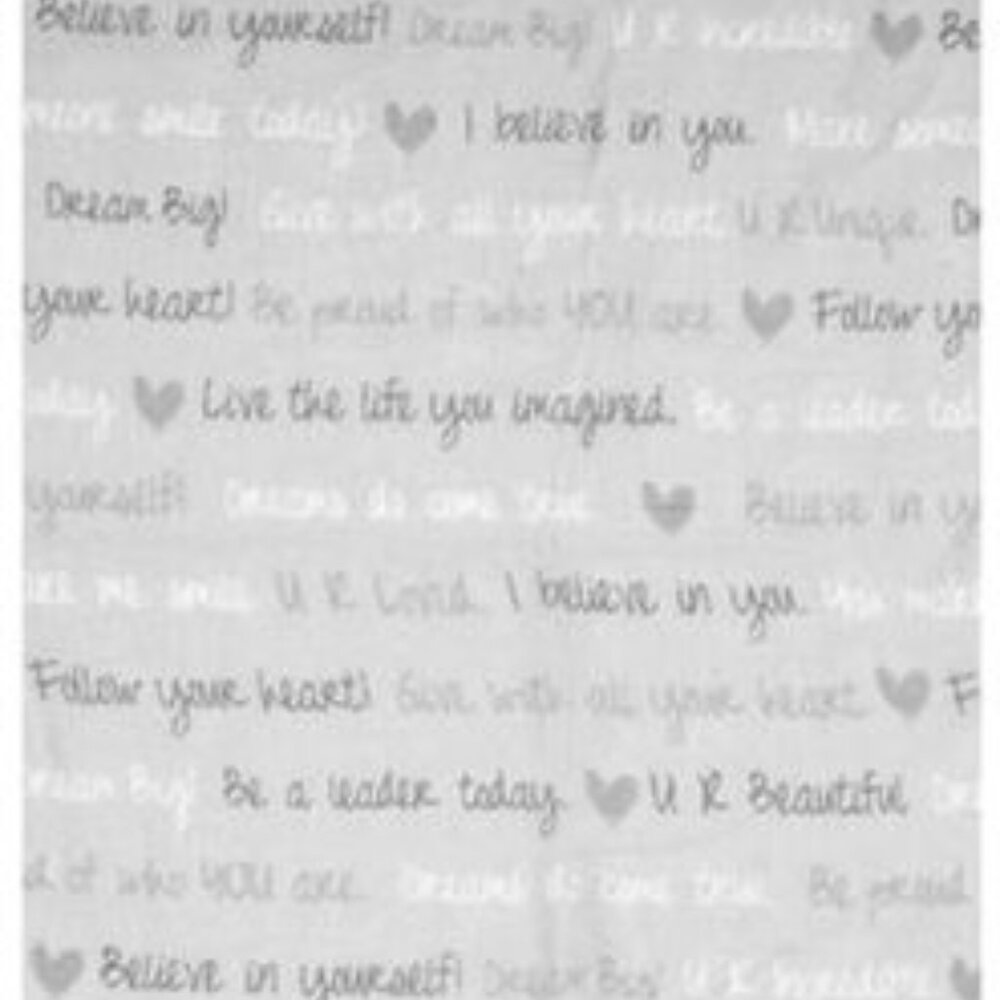 Believe in yourself! Dream Big! U R Incredible Be
smile today! I believe in you. Make
Dream Big! Give with all your heart U R Unique.
your heart! Be proud of who YOU are. Follow yo
today. Live the life you imagined. Be a leader tod
yourself! Dreams do come true. Believe in yo
me smile U R Loved. I believe in you. You make
Follow your heart! Give with all your heart F
Dream Big! Be a leader today. U R Beautiful
d of who YOU are. Dreams do come true. Be proud
Believe in yourself! Dream Big! U R Incredible